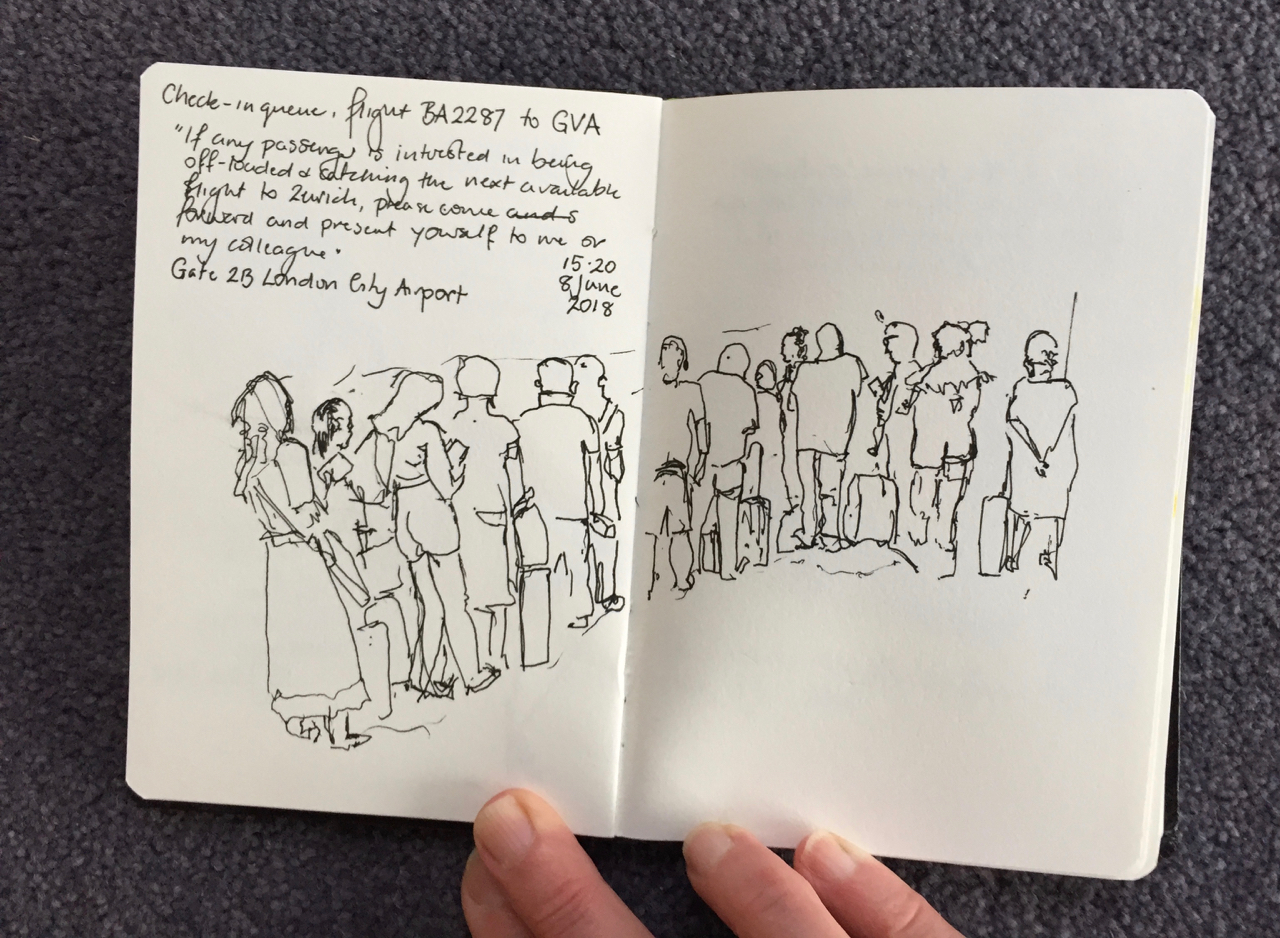 Check-in queue, flight BA2287 to GVA
"If any passenger is interested in being
off-loaded & catching the next available
flight to Zurich, please come and s
forward and present yourself to me or
my colleague."
15.20
Gate 2B London City Airport
8 June
2018